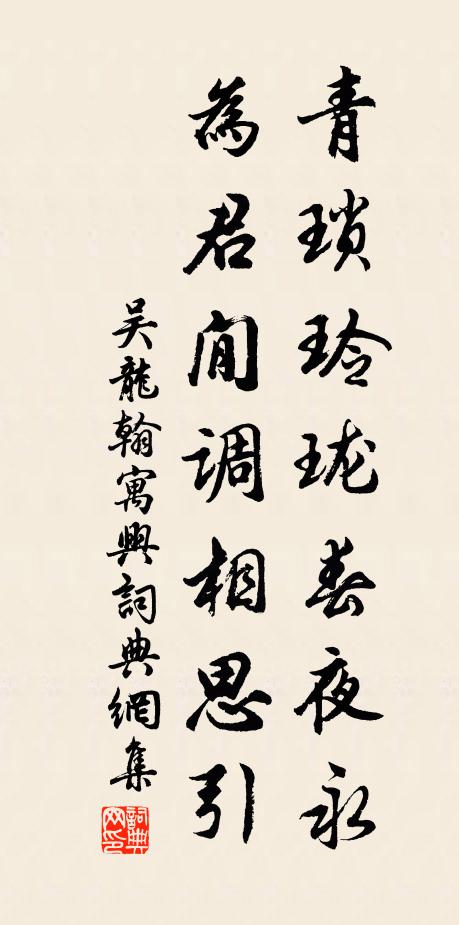 青瑣玲瓏春夜永
為君閒調相思引
吴龍翰寓興詞典網集
詞典網印